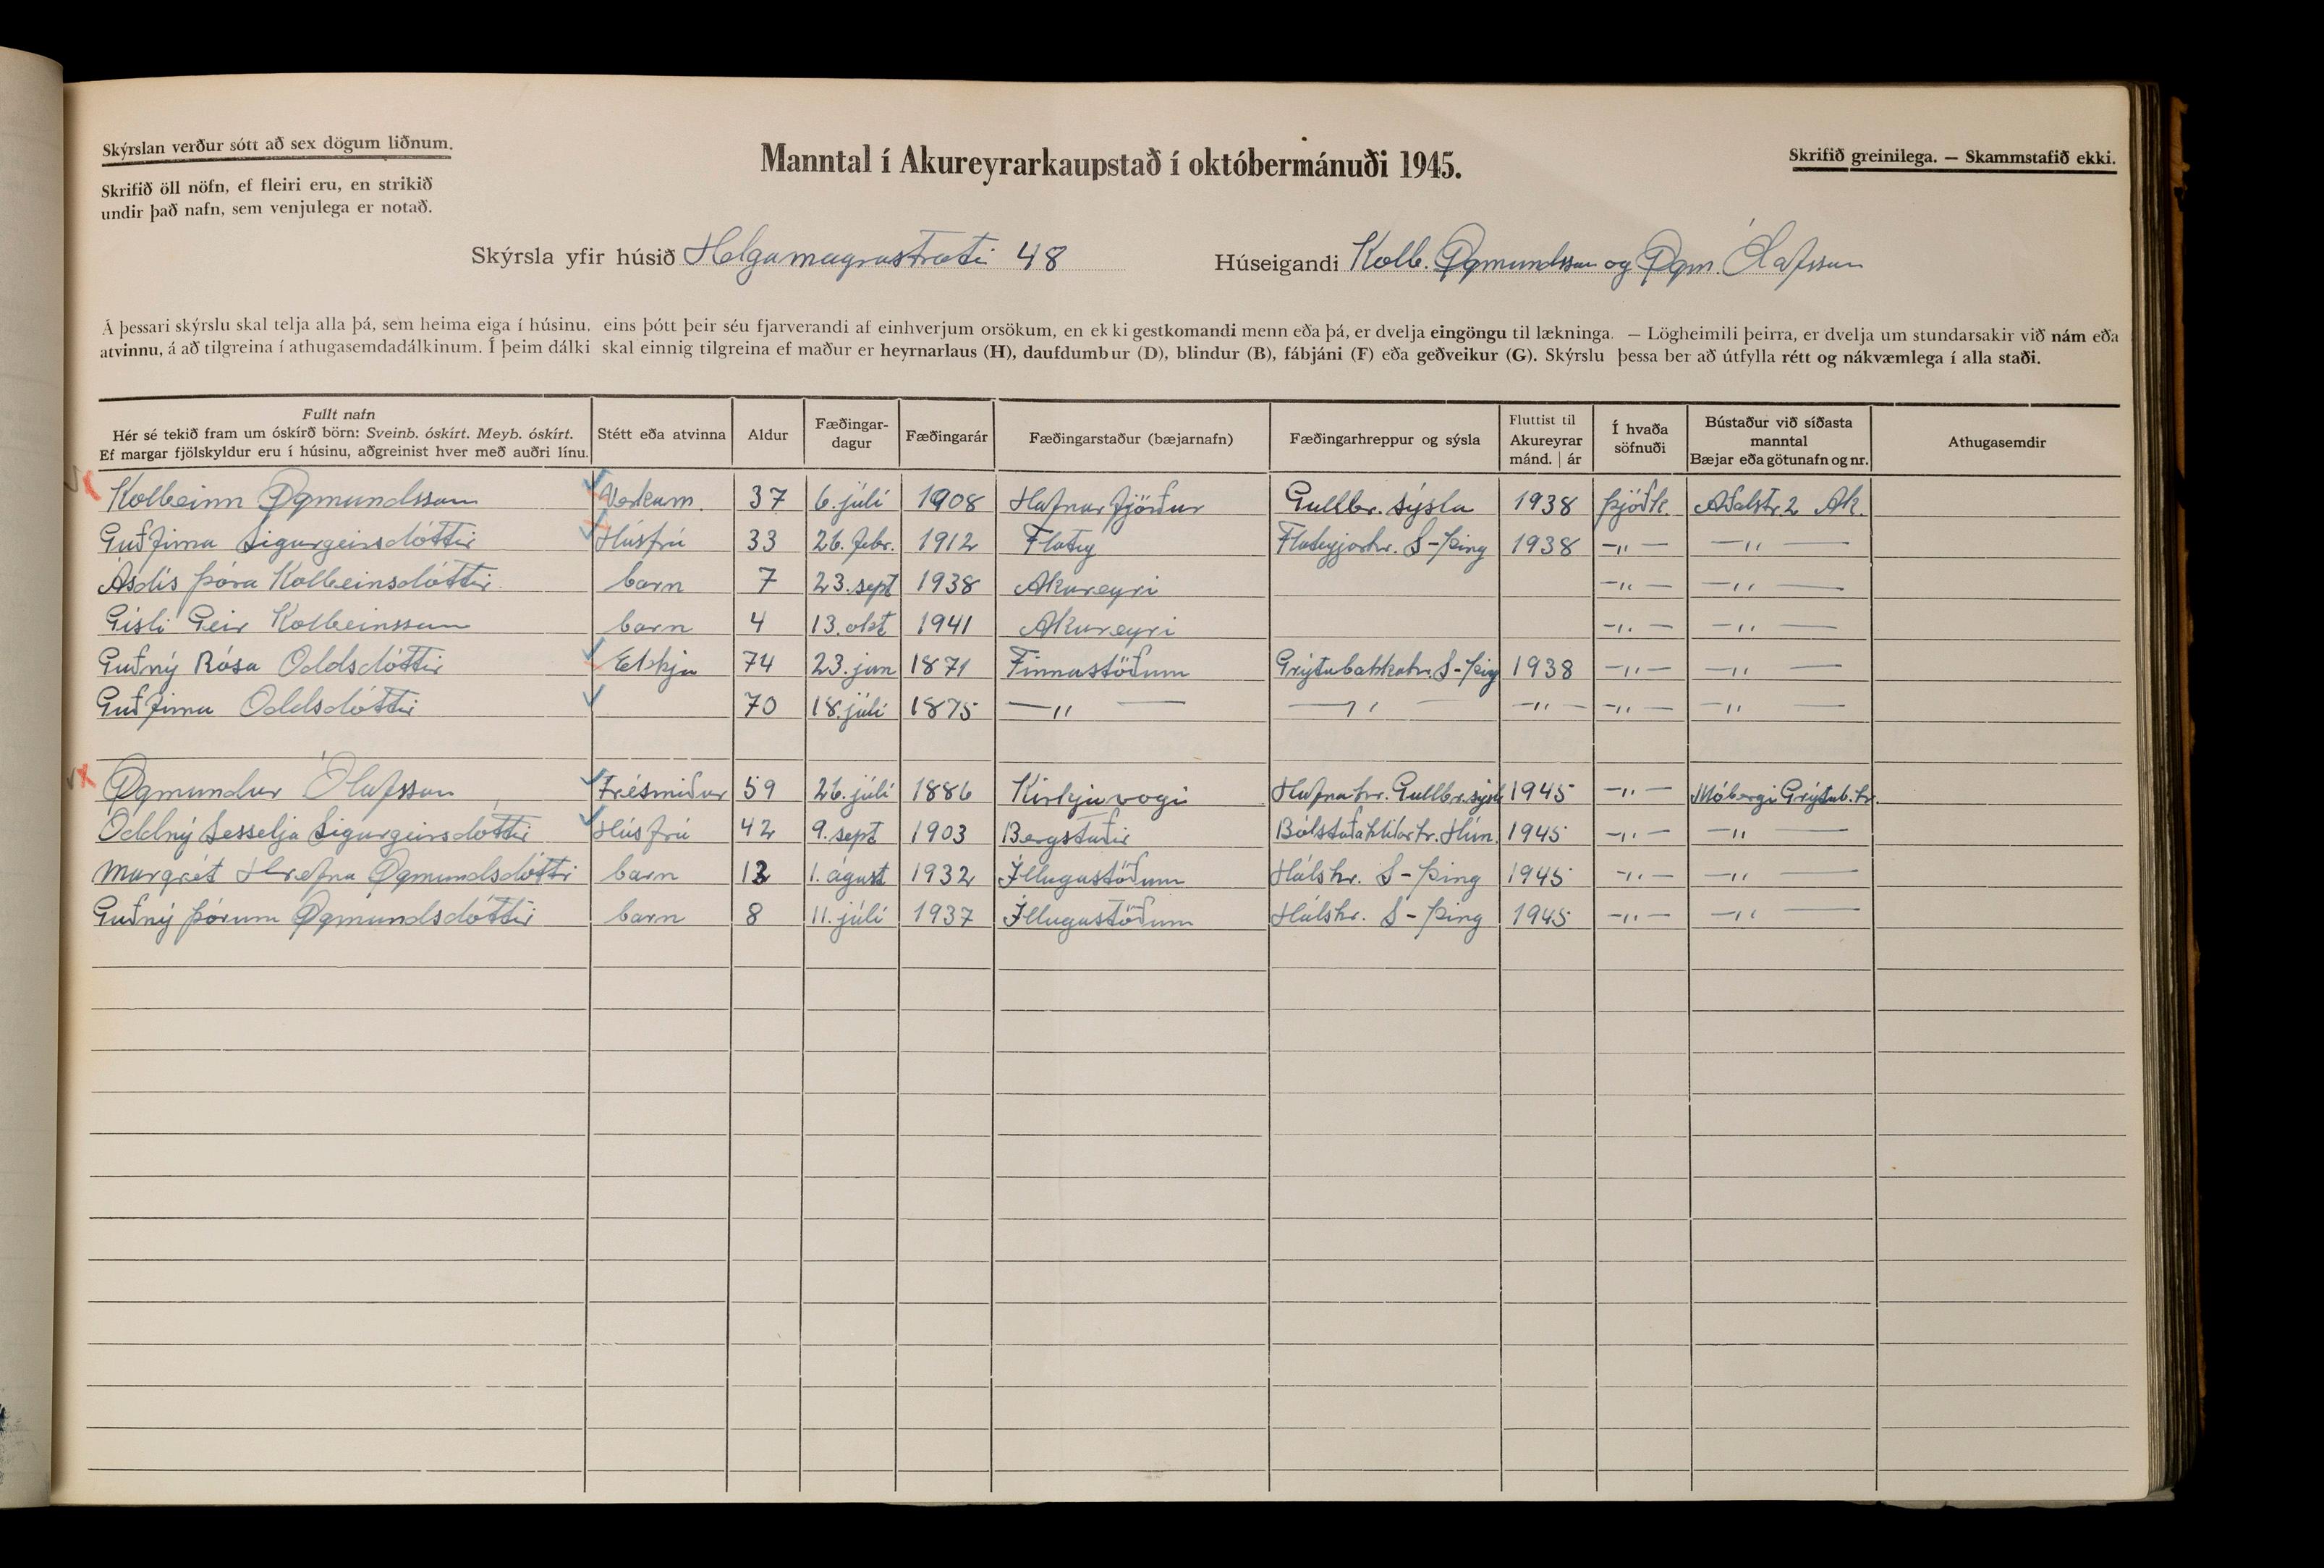 Skýrslan verður sótt að sex dögum liðnum.
Skrifið öll nöfn, ef fleiri eru, en strikið
undir það nafn, sem venjulega er notað.
Manntal í Akureyrarkaupstað í októbermánuði 1945.
Skrifið greinilega. — Skammstafið ekki.
Skýrsla yfir húsið Helgamagrastræti 48 Húseigandi Kolb. Ögmundsson og Ögm. Ólafsson
Á þessari skýrslu skal telja alla þá, sem heima eiga í húsinu, eins þótt þeir séu fjarverandi af einhverjum orsökum, en ekki gestkomandi menn eða þá, er dvelja eingöngu til lækninga. — Lögheimili þeirra, er dvelja um stundarsakir við nám eða
atvinnu, á að tilgreina í athugasemdadálkinum. Í þeim dálki skal einnig tilgreina ef maður er heyrnarlaus (H), daufdumbur (D), blindur (B), fábjáni (F) eða geðveikur (G). Skýrslu þessa ber að útfylla rétt og nákvæmlega í alla staði.
Fullt nafn
Hér sé tekið fram um óskírð börn: Sveinb. óskírt. Meyb. óskírt.
Ef margar fjölskyldur eru í húsinu, aðgreinist hver með auðri línu.
Stétt eða atvinna
Aldur
Fæðingar-
dagur
Fæðingarár
Fæðingarstaður (bæjarnafn)
Fæðingarhreppur og sýsla
Fluttist til
Akureyrar
mánd. | ár
Í hvaða
söfnuði
Bústaður við síðasta
manntal
Bæjar eða götunafn og nr.
Athugasemdir
Kolbeinn Ögmundsson Verkam. 37 6. júlí 1908 Hafnarfjörður Gullbr. sýsla 1938 þjóðk. Aðalstr. 2 Ak.
Guðfinna Sigurgeirsdóttir Húsfrú 33 26. febr. 1912 Flatey Flateyjarhr. S-Þing 1938 —"— —"—
Ásdís Þóra Kolbeinsdóttir barn 7 23. sept 1938 Akureyri —"— —"—
Gísli Geir Kolbeinsson barn 4 13. okt 1941 Akureyri —"— —"—
Guðný Rósa Oddsdóttir Ekkja 74 23. jan 1871 Finnastöðum Grýtubakkahr. S-Þing 1938 —"— —"—
Guðfinna Oddsdóttir 70 18. júlí 1875 —"— —"— —"— —"— —"—
Ögmundur Ólafsson Trésmiður 59 26. júlí 1886 Kirkjuvogi Hafnahr. Gullbr. sýsla 1945 —"— Móbergi Grýtub.hr.
Oddný Sesselja Sigurgeirsdóttir Húsfrú 42 9. sept 1903 Bergstaðir Bólstaðahlíðarhr. Hún. 1945 —"— —"—
Margrét Hrefna Ögmundsdóttir barn 13 1. ágúst 1932 Illugastöðum Hálshr. S-Þing 1945 —"— —"—
Guðný Þórunn Ögmundsdóttir barn 8 11. júlí 1937 Illugastöðum Hálshr. S-Þing 1945 —"— —"—